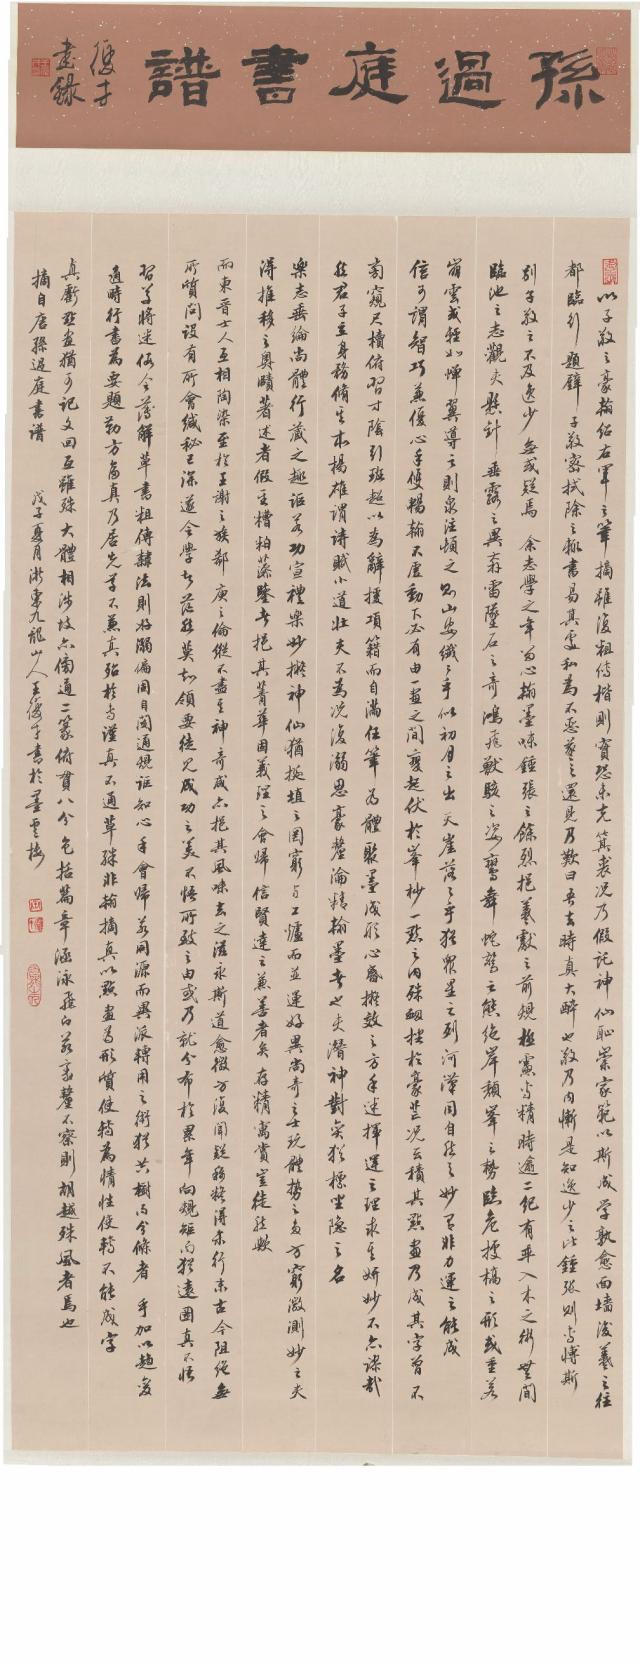 孫過庭書譜
書錄
以子敬之豪翰紹右軍之筆札雖復粗傳楷則實恐未克箕裘况乃假託神仙恥崇家範以斯成学孰愈面墙後羲之往
都臨行題壁子敬密拭除之輒書易其處私為不惡羲之還見乃歎曰吾去時真大醉也敬乃内慚是知逸少之比鍾張則專博斯
别子敬之不及逸少無或疑焉余志學之年留心翰墨味鍾張之餘烈挹羲獻之前規極慮專精時逾二紀有乖入木之術無間
臨池之志觀夫懸針垂露之異奔雷墜石之奇鴻飛獸駭之姿鸞舞蛇驚之態絶岸頽峯之勢臨危據槁之形或重若
崩雲或輕如蟬翼導之則泉注頓之則山安纖纖乎似初月之出天崖落落乎猶衆星之列河漢同自然之妙有非力運之能成
信可謂智巧兼優心手雙暢翰不虚動下必有由一畫之間變起伏於峯杪一點之内殊衄挫於豪芒况云積其點畫乃成其字曾不
傍窺尺牘俯習寸陰引班超以為辭援項籍而自滿任筆為體聚墨成形心昏擬效之方手迷揮運之理求其妍妙不亦謬哉
然君子立身務脩其本揚雄謂詩賦小道壯夫不為况復溺思豪釐淪精翰墨者也夫潛神對奕猶標坐隱之名
樂志垂綸尚體行藏之趣詎若功宣禮樂妙擬神仙猶挻埴之罔窮与工爐而並運好異尚奇之士玩體勢之多方窮微測妙之夫
得推移之奥賾著述者假其糟粕藻鑒者挹其菁華固義理之會歸信賢達之兼善者矣存精寓賞豈徒然歟
而東晋士人互相陶染至於王謝之族郗庾之倫縱不盡其神奇咸亦挹其風味去之滋永斯道愈微方復聞疑稱疑得末行末古今阻绝無
所質問設有所會緘秘已深遂令學者茫然莫知領要徒見成功之美不悟所致之由或乃就分布於累年向規矩而猶遠圖真不悟
習草將迷假令薄解草書粗傳隸法則好溺偏固自閡通規詎知心手會歸若同源而異派轉用之術猶共樹而分條者乎加以趨變
適時行書為要題勒方畐真乃居先草不兼真殆於專謹真不通草殊非翰札真以點畫為形質使轉為情性使轉不能成字
真虧點畫猶可記文回互雖殊大體相涉故亦傍通二篆俯貫八分包括篇章涵泳飛白若毫釐不察則胡越殊風者焉也
摘自唐孫過庭書譜 戊子夏月浙東九龍山人王才書於墨雲樓